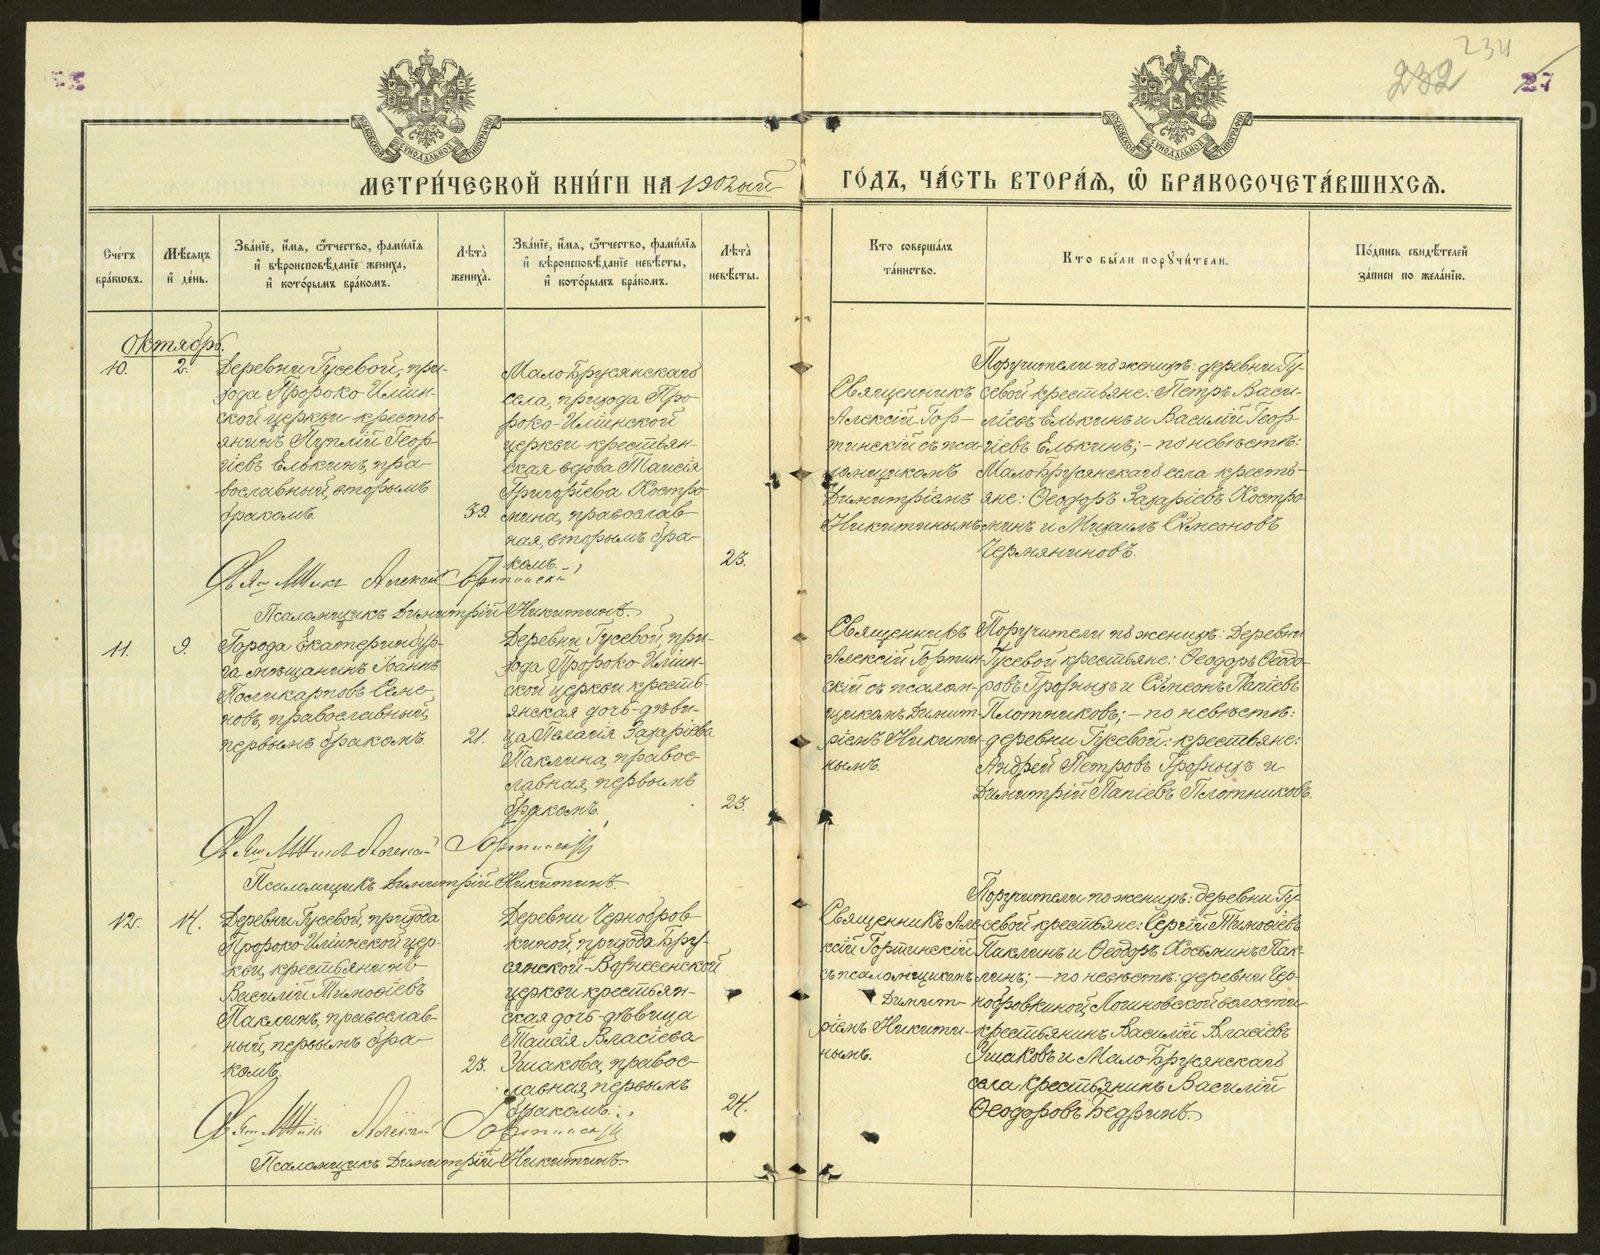 234
232
27
МЕТРИ́ЧЕСКОЙ КНИ́ГИ НА 1902ый
ГО́ДЪ, ЧА́СТЬ ВТОРА́Я, Ѽ БРАКОСОЧЕТА́ВШИХСЯ.
Сче́тъ бра́ковъ.
Мѣ́сяцъ и́ де́нь.
Зва́нїе, и́мя, ѻ҆́тчество, фами́лїя
и́ вѣроисповѣ́данїе жениха̀,
и́ кото́рымъ бра́комъ.
Лѣ́та̀ жениха̀.
Зва́нїе, и́мя, ѻ҆́тчество, фами́лїя
и́ вѣроисповѣ́данїе невѣ́сты,
и́ кото́рымъ бра́комъ.
Лѣ́та̀ невѣ́сты.
Кто̀ соверша́лъ
та́инство.
Кто̀ бы́ли порꙋчи́тели.
По́дпись свидѣ́телей
за́писи по жела́нїю.
Октябрь.
10.
2.
Деревни Гусевой, при-
хода Пророко-Илiин-
ской церкви кресть-
янинъ Геор-
гiевъ Елькинъ, пра-
вославный, вторымъ
бракомъ.
39.
Мало Брусянскаго
села, прихода Про-
роко-Илiинской
церкви крестьян-
ская вдова Таисiя
Григорiева Костро-
мина, православ-
ная, вторымъ бра-
комъ.
23.
Священникъ
Алексiй Гор-
тинскiй съ пса-
ломщикомъ
Димитрiемъ
Никитинымъ
Поручители по женихѣ: деревни Гу-
севой крестьяне: Петръ Васи-
лiевъ Елькинъ и Василiй Геор-
гiевъ Елькинъ; – по невѣстѣ:
Мало Брусянскаго села кресть-
яне: Ѳеодоръ Захарiевъ Костро-
минъ и Михаилъ Сѵмеоновъ
Чермяниновъ.
Священникъ Алексiй Гортинскiй
Псаломщикъ Димитрiй Никитинъ.
11.
9.
Города Екатеринбур-
га мѣщанинъ Iоаннъ
Поликарповъ Семе-
новъ, православный,
первымъ бракомъ.
21.
Деревни Гусевой, при-
хода Пророко-Илiин-
ской церкви кресть-
янская дочь-дѣви-
ца Пелагiя Захарiева
Паклина, правос-
лавная, первымъ
бракомъ.
23.
Священникъ
Алексiй Гортин-
скiй съ псалом-
щикомъ Димит-
рiемъ Никити-
нымъ.
Поручители по женихѣ: Деревни
Гусевой крестьяне: Ѳеодоръ Ѳеодо-
ровъ Грозныхъ и Сѵмеонъ Папiевъ
Плотниковъ; – по невѣстѣ:
деревни Гусевой: крестьяне:
Андрей Петровъ Грозныхъ и
Димитрiй Папiевъ Плотниковъ.
Священникъ Алексiй Гортинскiй
Псаломщикъ Димитрiй Никитинъ
12.
14.
Деревни Гусевой, прихода
Пророко-Илiинской цер-
кви, крестьянинъ
Василiй Тимоѳiевъ
Паклинъ, православ-
ный, первымъ бра-
комъ.
23.
Деревни Чернобров-
киной, прихода Бру-
сянской-Вознесенской
церкви крестьян-
ская дочь-дѣвица
Таисiя Власiева
Ушакова, правос-
лавная, первымъ
бракомъ.
24.
Священникъ Але-
ксiй Гортинскiй
съ псаломщикомъ
Димит-
рiемъ Никити-
нымъ.
Поручители по женихѣ: деревни Гу-
севой крестьяне: Сергiй Тимоѳiевъ
Паклинъ и Ѳеодоръ Косьминъ Пак-
линъ; – по невѣстѣ: деревни Чер-
нобровкиной, Логиновской волости
крестьянинъ Василiй Власiевъ
Ушаковъ и Мало Брусянскаго
села крестьянинъ Василiй
Ѳеодоровъ Бедринъ.
Священникъ Алексiй Гортинскiй
Псаломщикъ Димитрiй Никитинъ